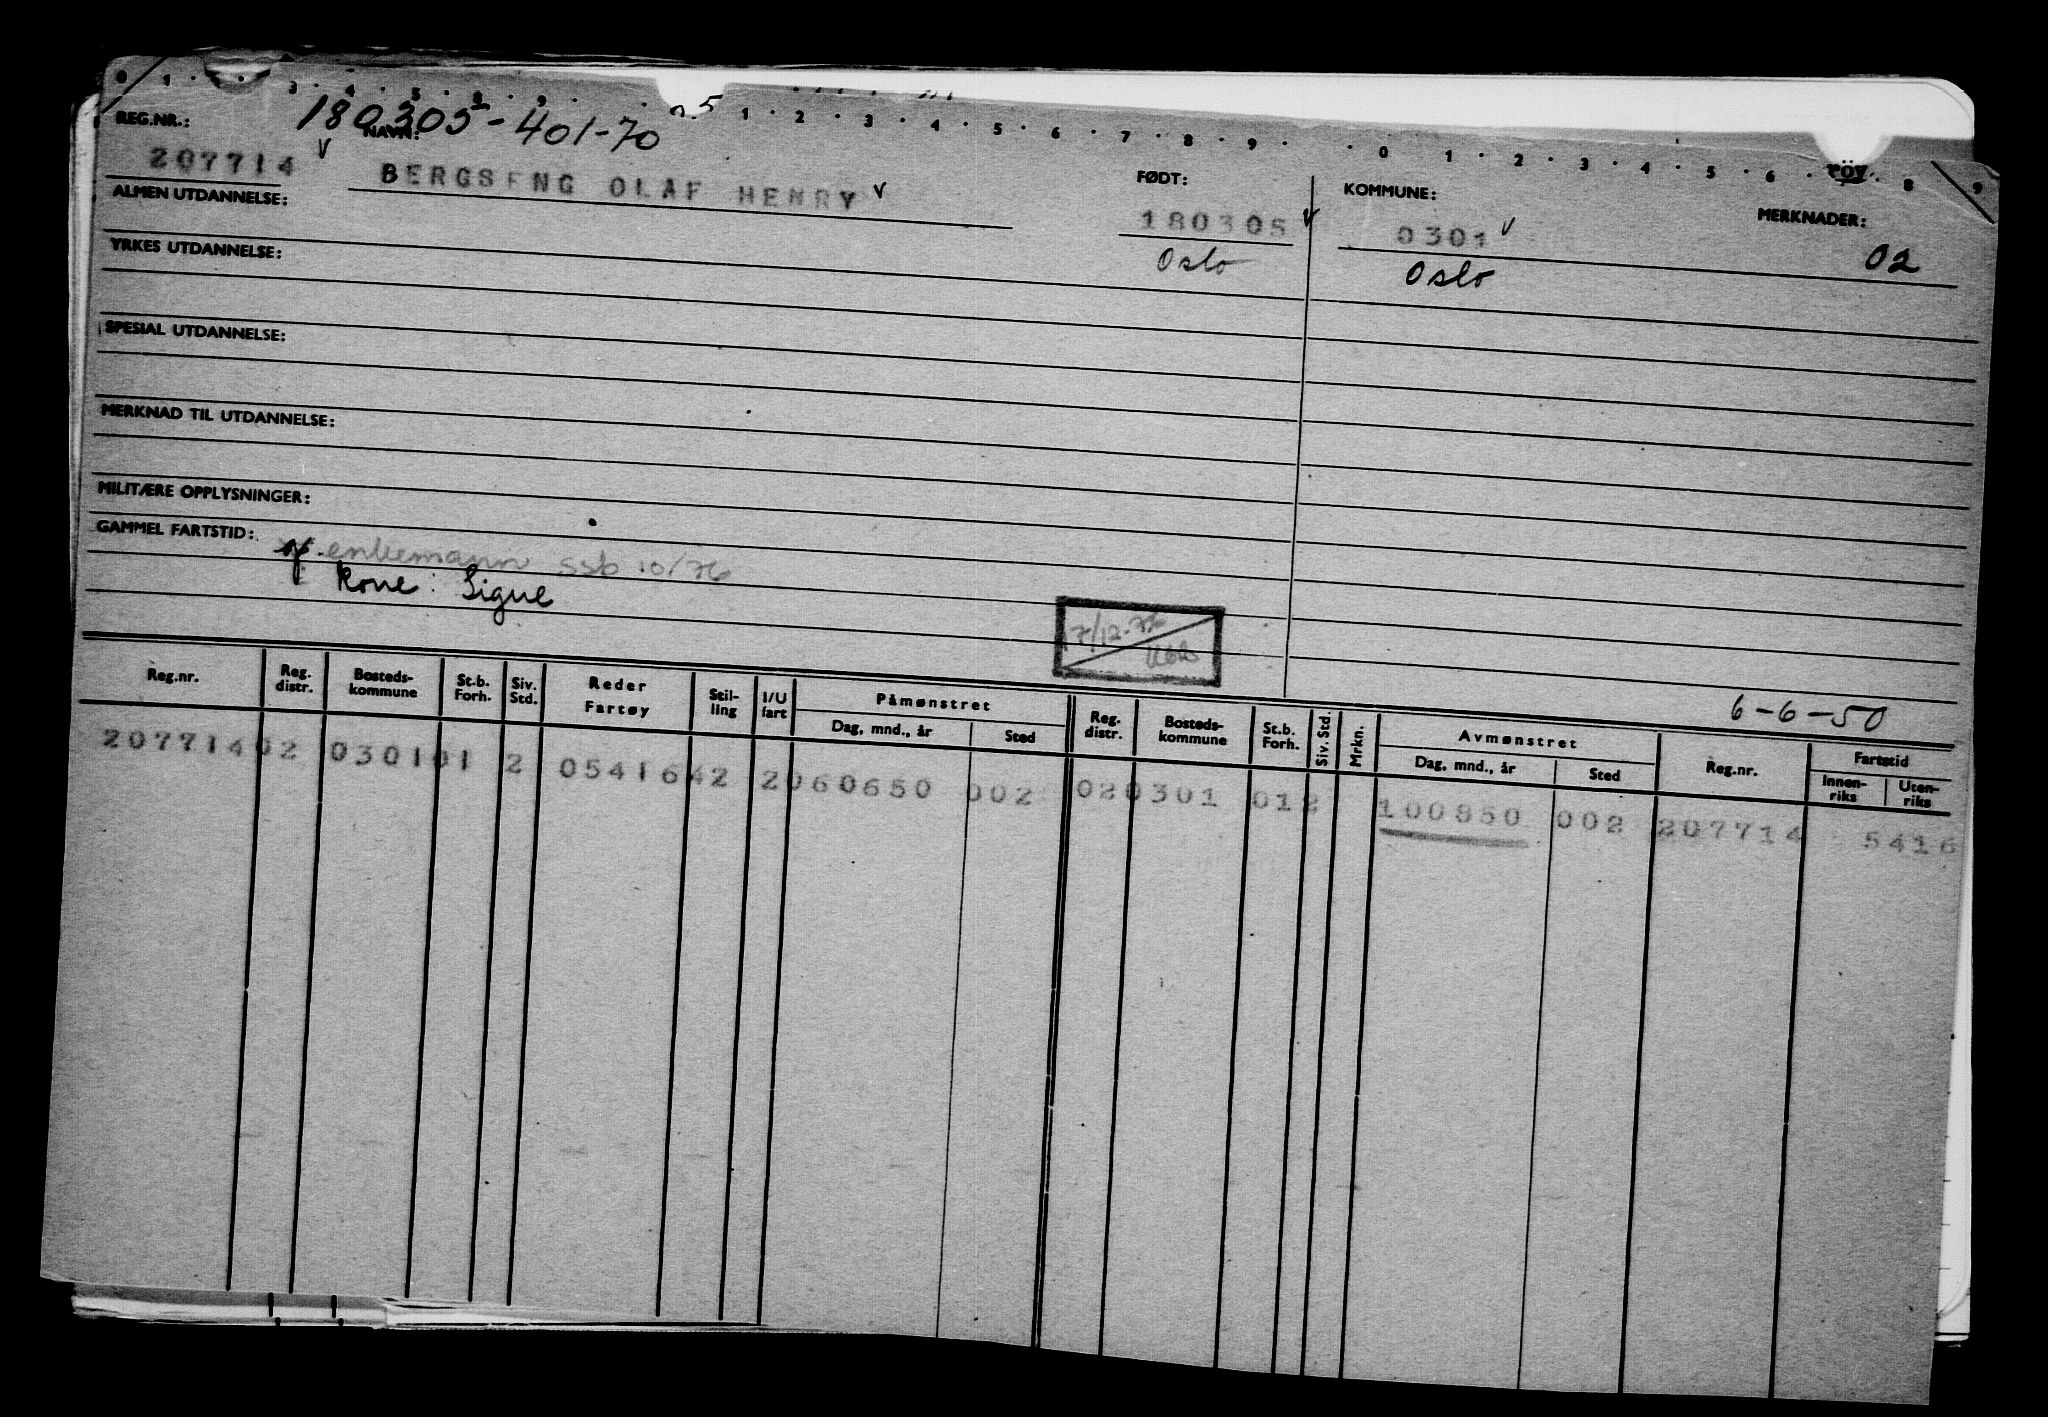 180305-401-70
REG.NR.: NAVN:
207714 BERGSENG OLAF HENRY
FØDT: 180305 Oslo
KOMMUNE: 0301 Oslo
MERKNADER: 02
ALMEN UTDANNELSE:
YRKES UTDANNELSE:
SPESIAL UTDANNELSE:
MERKNAD TIL UTDANNELSE:
MILITÆRE OPPLYSNINGER:
GAMMEL FARTSTID:
enkemann ssb 10/76
kone: Signe
17/12-76
6-6-50
Reg.nr. Reg. distr. Bosteds- kommune St.b. Forh. Siv. Std. Reder Fartøy Stil- ling I/U fart Påmønstret Dag, mnd., år Sted Reg. distr. Bosteds- kommune St.b. Forh. Siv. Std. Mrkn. Avmønstret Dag, mnd., år Sted Reg.nr. Fartstid Innen- riks Uten- riks
207714 02 0301 01 2 05416 42 2 060650 002 02 0301 01 2 100850 002 207714 5416